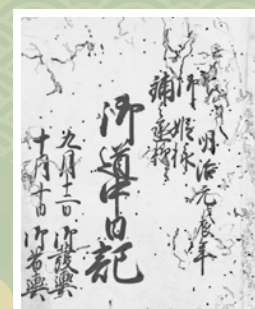 明治元戊辰年
御姫様
御道中日記
九月十二日 御發輿
十月十日 御着輿